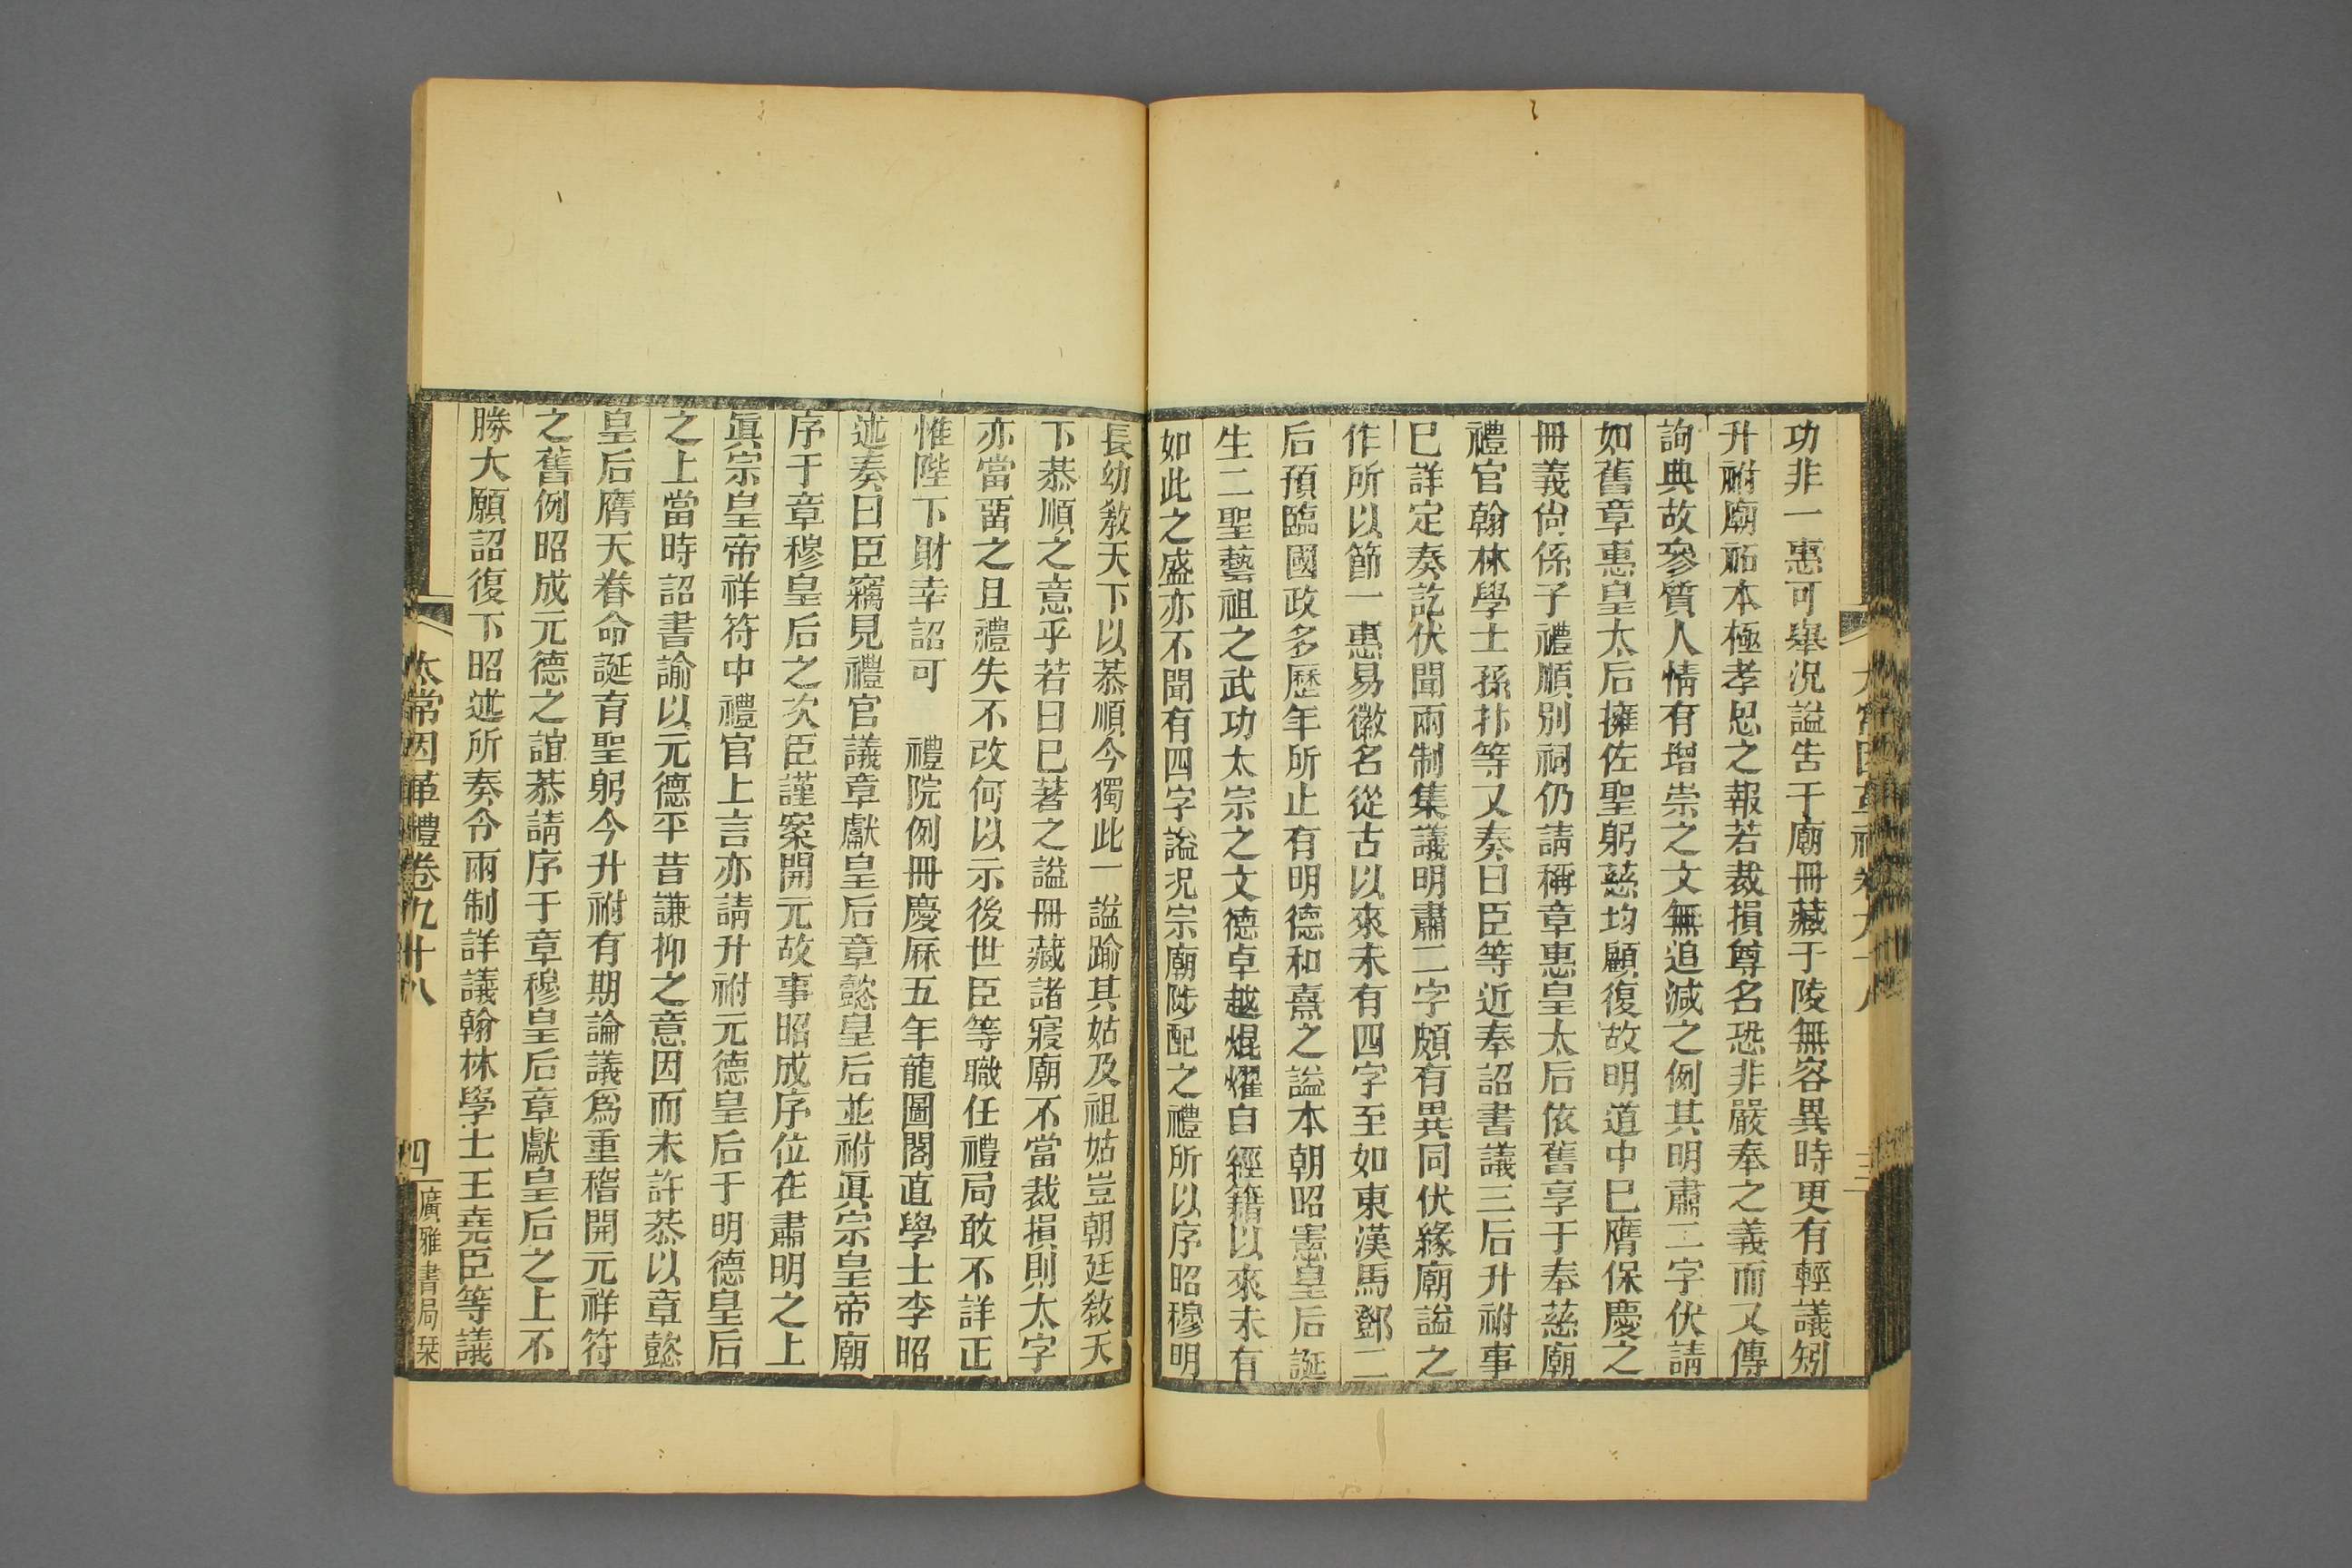 太常因革禮卷九十八
三
功非一惠可舉況諡告于廟冊藏于陵無容異時更有輕議矧
升祔廟祏本極孝思之報若裁損尊名恐非嚴奉之義而又傳
詢典故參質人情有增崇之文無追減之例其明肅二字伏請
如舊章惠皇太后擁佐聖躬慈均顧復故明道中已膺保慶之
冊義尙係子禮順別祠仍請稱章惠皇太后依舊享于奉慈廟
禮官翰林學士孫抃等又奏曰臣等近奉詔書議三后升祔事
已詳定奏訖伏聞兩制集議明肅二字頗有異同伏緣廟諡之
作所以節一惠易徽名從古以來未有四字至如東漢馬鄧二
后預臨國政多歷年所止有明德和熹之諡本朝昭憲皇后誕
生二聖藝祖之武功太宗之文德卓越焜燿自經籍以來未有
如此之盛亦不聞有四字諡況宗廟陟配之禮所以序昭穆明
長幼敎天下以恭順今獨此一諡踰其姑及祖姑豈朝廷敎天
下恭順之意乎若曰已著之諡冊藏諸寢廟不當裁損則太字
亦當畱之且禮失不改何以示後世臣等職任禮局敢不詳正
惟陛下財幸詔可　禮院例冊慶厤五年龍圖閣直學士李昭
述奏曰臣竊見禮官議章獻皇后章懿皇后並祔眞宗皇帝廟
序于章穆皇后之次臣謹案開元故事昭成序位在肅明之上
眞宗皇帝祥符中禮官上言亦請升祔元德皇后于明德皇后
之上當時詔書諭以元德平昔謙抑之意因而未許恭以章懿
皇后膺天眷命誕育聖躬今升祔有期論議爲重稽開元祥符
之舊例昭成元德之誼恭請序于章穆皇后章獻皇后之上不
勝大願詔復下昭述所奏令兩制詳議翰林學士王堯臣等議
太常因革禮卷九十八
四
廣雅書局栞